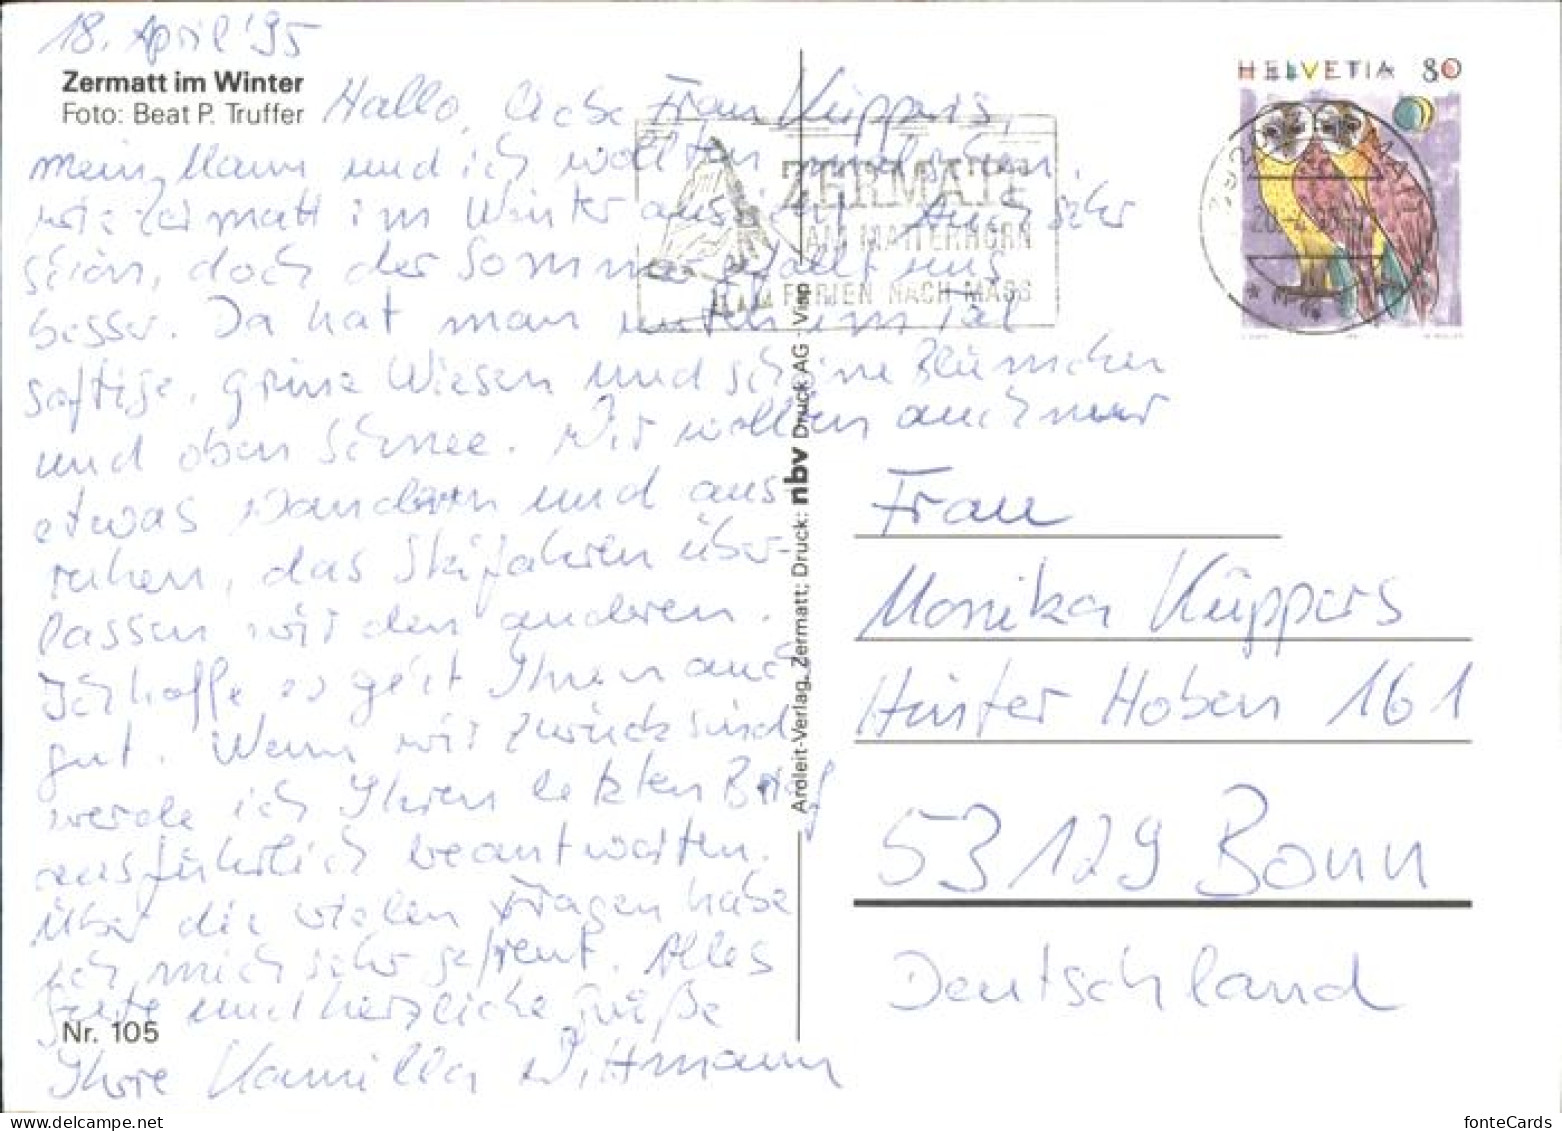 18. April '95
Zermatt im Winter
Foto: Beat P. Truffer
Hallo, liebe Frau Küppers,
mein Mann und ich wollten mal sehen,
wie Zermatt im Winter aussieht. Auch sehr
schön, doch der Sommer gefällt uns
besser. Da hat man unten im Tal
saftige, grüne Wiesen und schöne Blümchen
und oben Schnee. Wir wollten auch nur
etwas wandern und aus-
ruhen, das Skifahren über-
lassen wir den anderen.
Ich hoffe es geht Ihnen auch
gut. Wenn wir zurück sind
werde ich Ihren letzten Brief
ausführlich beantworten.
Über die vielen Fragen habe
ich mich sehr gefreut. Alles
Gute und herzliche Grüße
Nr. 105
Ihre Kamilla Wittmann
ZERMATT
AM MATTERHORN
FERIEN NACH MASS
Aroleit-Verlag, Zermatt; Druck: nbv Druck AG · Visp
HELVETIA 80
Frau
Monika Küppers
Hinter Hoben 161
53129 Bonn
Deutschland
fonteCards